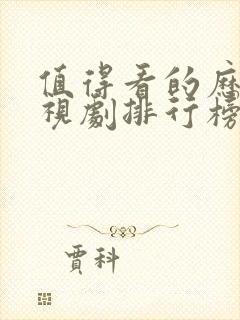 值得看的歷
視劇排行榜
賈科